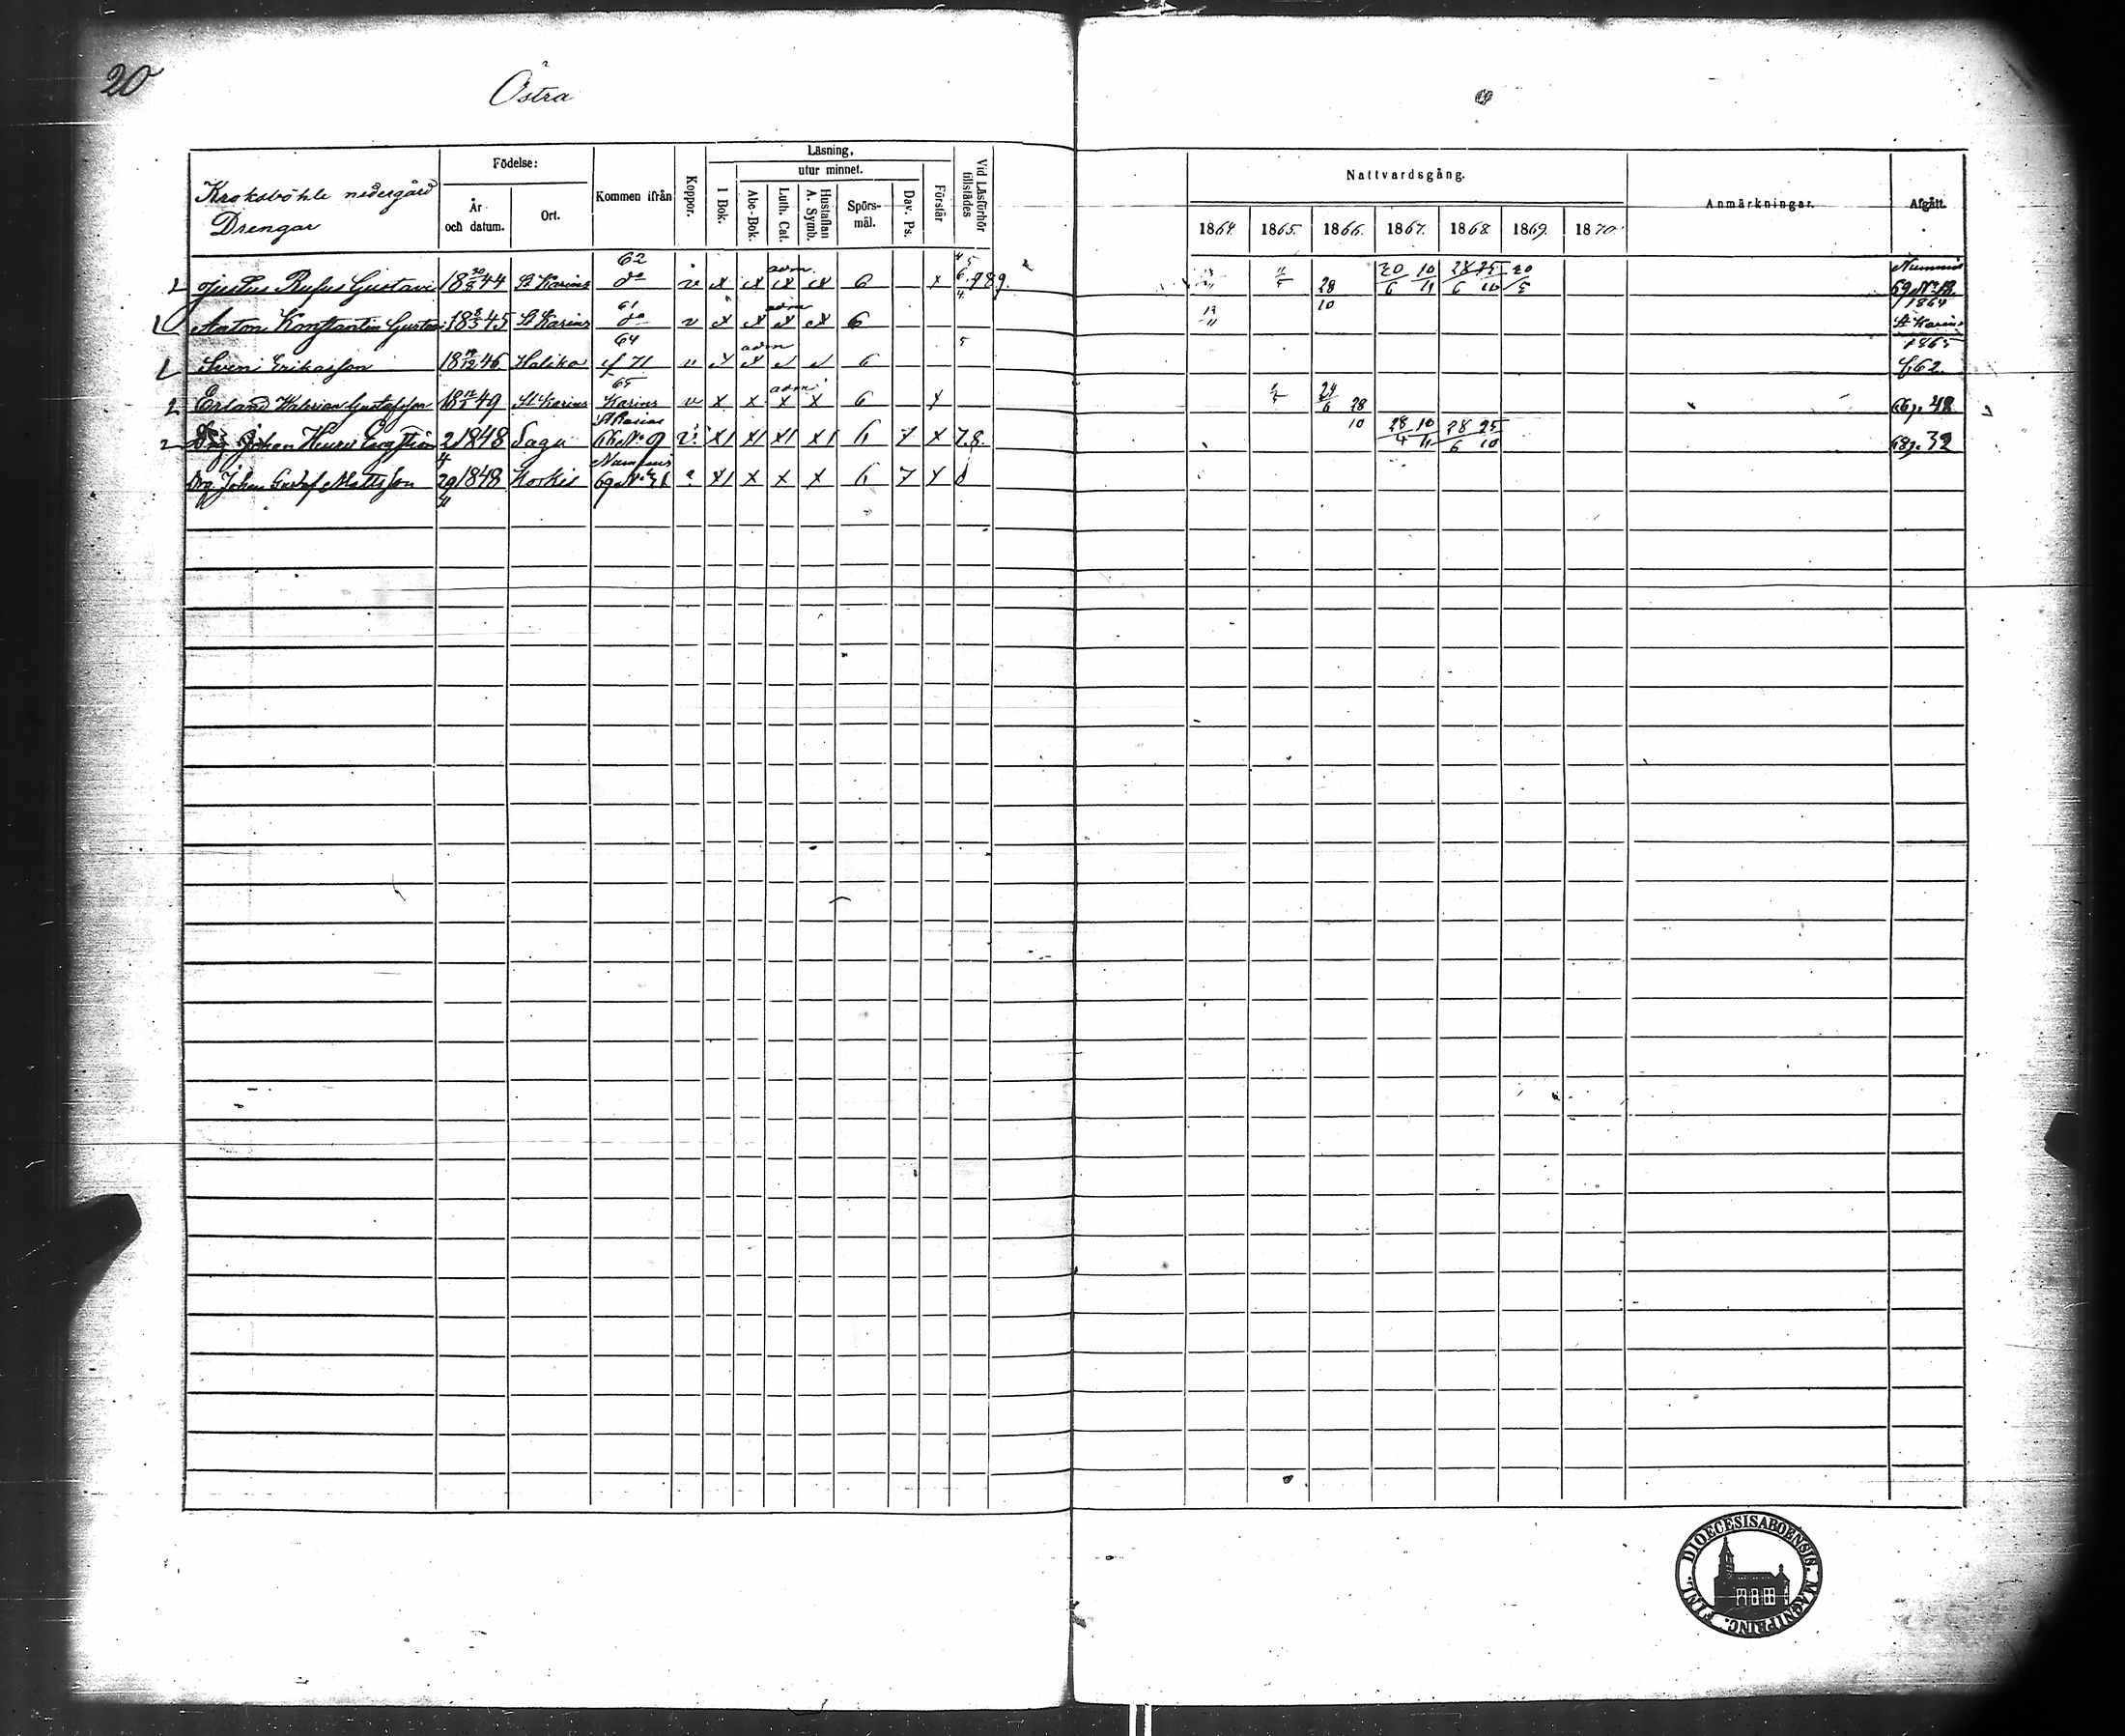 20
Östra
Födelse:
Läsning,
utur minnet.
Kroksböhle nedergård
Drengar
År och datum.
Ort.
Kommen ifrån
Koppor.
I Bok.
Abc-Bok.
Luth. Cat.
Hustaflan A. Symb.
Spörs-mål.
Dav. Ps.
Förstår
Vid Läsförhör tillstädes
Nattvardsgång.
Anmärkningar.
Afgått.
1864. 1865. 1866. 1867. 1868 1869. 1870.
62 adm. Nummis
Justus Rufus Gustavi 18 20/5 44 St Karins do v x x x x 6 x 789. 28/10 20/6 10/11 28/6 25/10 20/5
61 adm 1864
Anton Konstantin Gustavi 45 St Karins do v x x x x 6 13/11 St Karins
64 adm 5 1865
Sven Eriksson 46 Haliko f 71 v 6 f 62
65 adm
Erland Valerian Gustafsson 49 St Karins Karins v x x x x 6 x 24/6 28/10 66 p. 48
St Karins
Drg Johan Henric Engström 2/4 1848 Sagu 66 No 9 v. x x x x 6 7 x 7.8. 28/4 10/11 28/6 25/10 68 p. 32
Nummis
Drg. Johan Gustaf Mattsson 29/4 1848 Koskis 69 x x x x 6 7 x
DIOECESIS ABOENSIS. MAGNI PRINC. FINL.